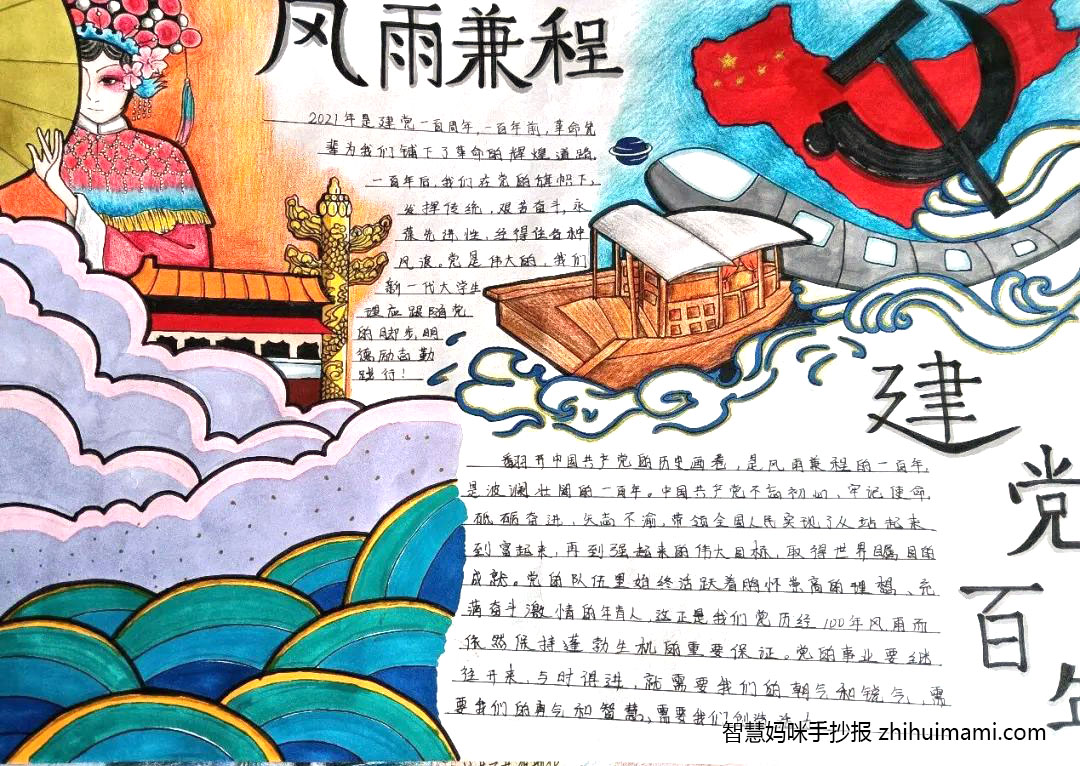 风雨兼程
2021年是建党一百周年,一百年前,革命先
辈为我们铺下了革命的辉煌道路.
一百年后,我们在党的旗帜下,
发挥传统,艰苦奋斗,永
葆先进性,经得住各种
风浪。党是伟大的,我们
新一代大学生
理应跟随党
的脚步,明
德励志勤
践行!
建
党
百
年
翻开中国共产党的历史画卷,是风雨兼程的一百年,
是波澜壮阔的一百年。中国共产党不忘初心,牢记使命,
砥砺奋进,矢志不渝,带领全国人民实现了从站起来
到富起来,再到强起来的伟大目标,取得世界瞩目的
成就。党的队伍里始终活跃着胸怀崇高的理想、充
满奋斗激情的年青人,这正是我们党历经100年风雨而
依然保持蓬勃生机的重要保证。党的事业要继
往开来,与时俱进,就需要我们的朝气和锐气,需
要我们的勇气和智慧,需要我们创造
智慧妈咪手抄报 zhihuimami.com